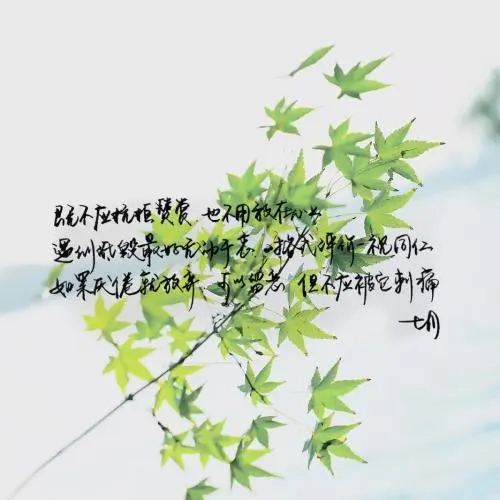 既不应抗拒赞赏 也不用放在心上
遇到诋毁最好无动于衷 格式评价一视同仁
如果厌倦就放弃、可以留恋 但不应被它刺痛
七月